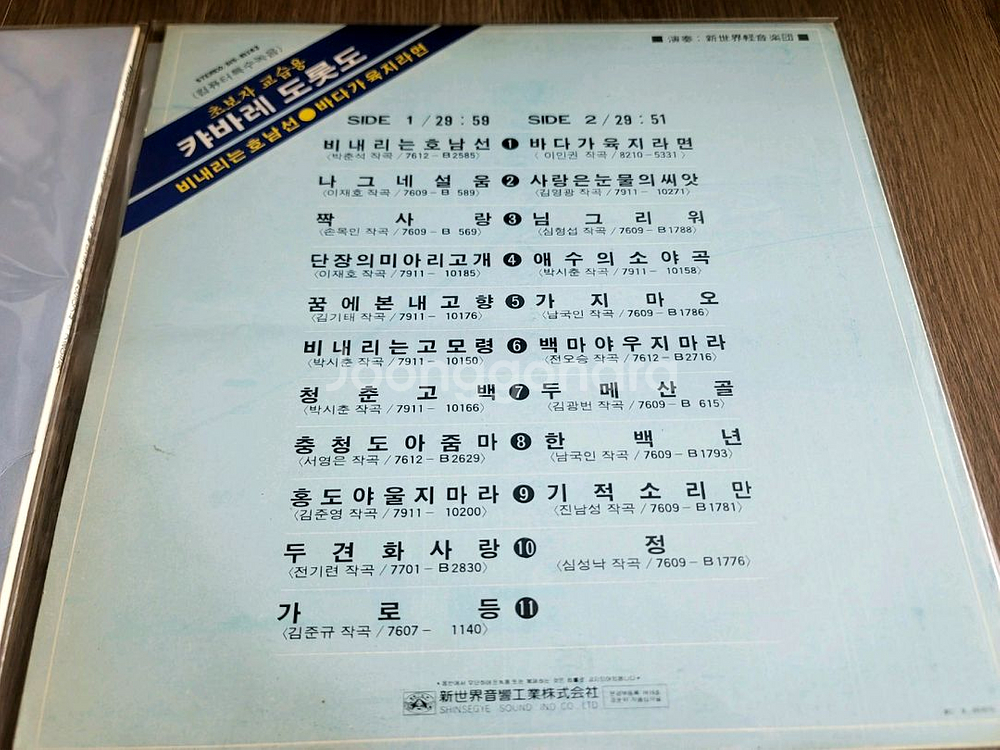 〈컴퓨터특수녹음〉
초보자 교습용
캬바레 도롯도
비내리는 호남선●바다가 육지라면
■ 演奏 : 新世界軽音楽団 ■
SIDE 1 / 29 : 59 SIDE 2 / 29 : 51
비내리는호남선 ❶ 바다가육지라면
〈박춘석 작곡 / 7612 – B2585〉 〈이인권 작곡 / 8210 - 5331〉
나그네설움 ❷ 사랑은눈물의씨앗
〈이재호 작곡 / 7609 – B 589〉 〈김영광 작곡 / 7911 – 10271〉
짝사랑 ❸ 님그리워
〈손목인 작곡 / 7609 – B 569〉 〈심형섭 작곡 / 7609 – B1788〉
단장의미아리고개 ❹ 애수의소야곡
〈이재호 작곡 / 7911 – 10185〉 〈박시춘 작곡 / 7911 – 10158〉
꿈에본내고향 ❺ 가지마오
〈김기태 작곡 / 7911 – 10176〉 〈남국인 작곡 / 7609 – B1786〉
비내리는고모령 ❻ 백마야우지마라
〈박시춘 작곡 / 7911 – 10150〉 〈전오승 작곡 / 7612 – B2716〉
청춘고백 ❼ 두메산골
〈박시춘 작곡 / 7911 – 10166〉 〈김광빈 작곡 / 7609 – B 615〉
충청도아줌마 ❽ 한백년
〈서영은 작곡 / 7612 – B2629〉 〈남국인 작곡 / 7609 – B1793〉
홍도야울지마라 ❾ 기적소리만
〈김준영 작곡 / 7911 – 10200〉 〈진남성 작곡 / 7609 – B1781〉
두견화사랑 ❿ 정
〈전기련 작곡 / 7701 – B2830〉 〈심성낙 작곡 / 7609 – B1776〉
가로등 ⓫
〈김준규 작곡 / 7607 – 1140〉
新世界音響工業株式会社
SHINSEGYE SOUND IND CO., LTD
Joonggonara